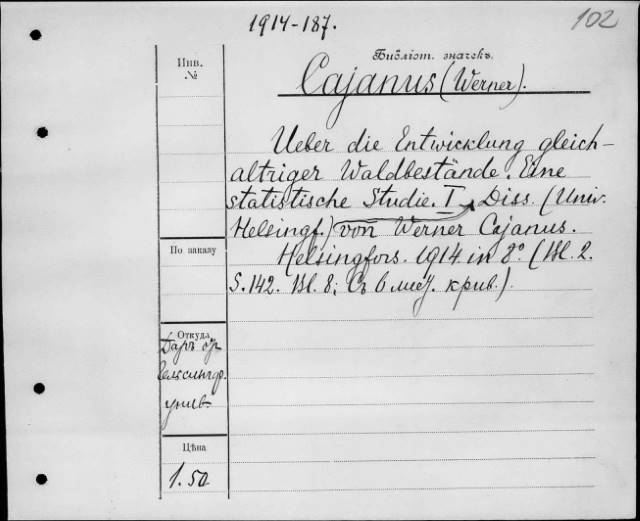 1914-187.
102
Инв.
№
Библіот. значекъ.
Cajanus (Werner).
Ueber die Entwicklung gleich-
altriger Waldbestände. Eine
statistische Studie. I. Diss. (Univ.
Helsingf.) von Werner Cajanus.
По заказу
Helsingfors. 1914. in 8° (Bl. 2.
S. 142. Bl. 8; Съ 6 крив.).
Откуда
Даръ
Гельсингф.
унив.
Цѣна
1.50